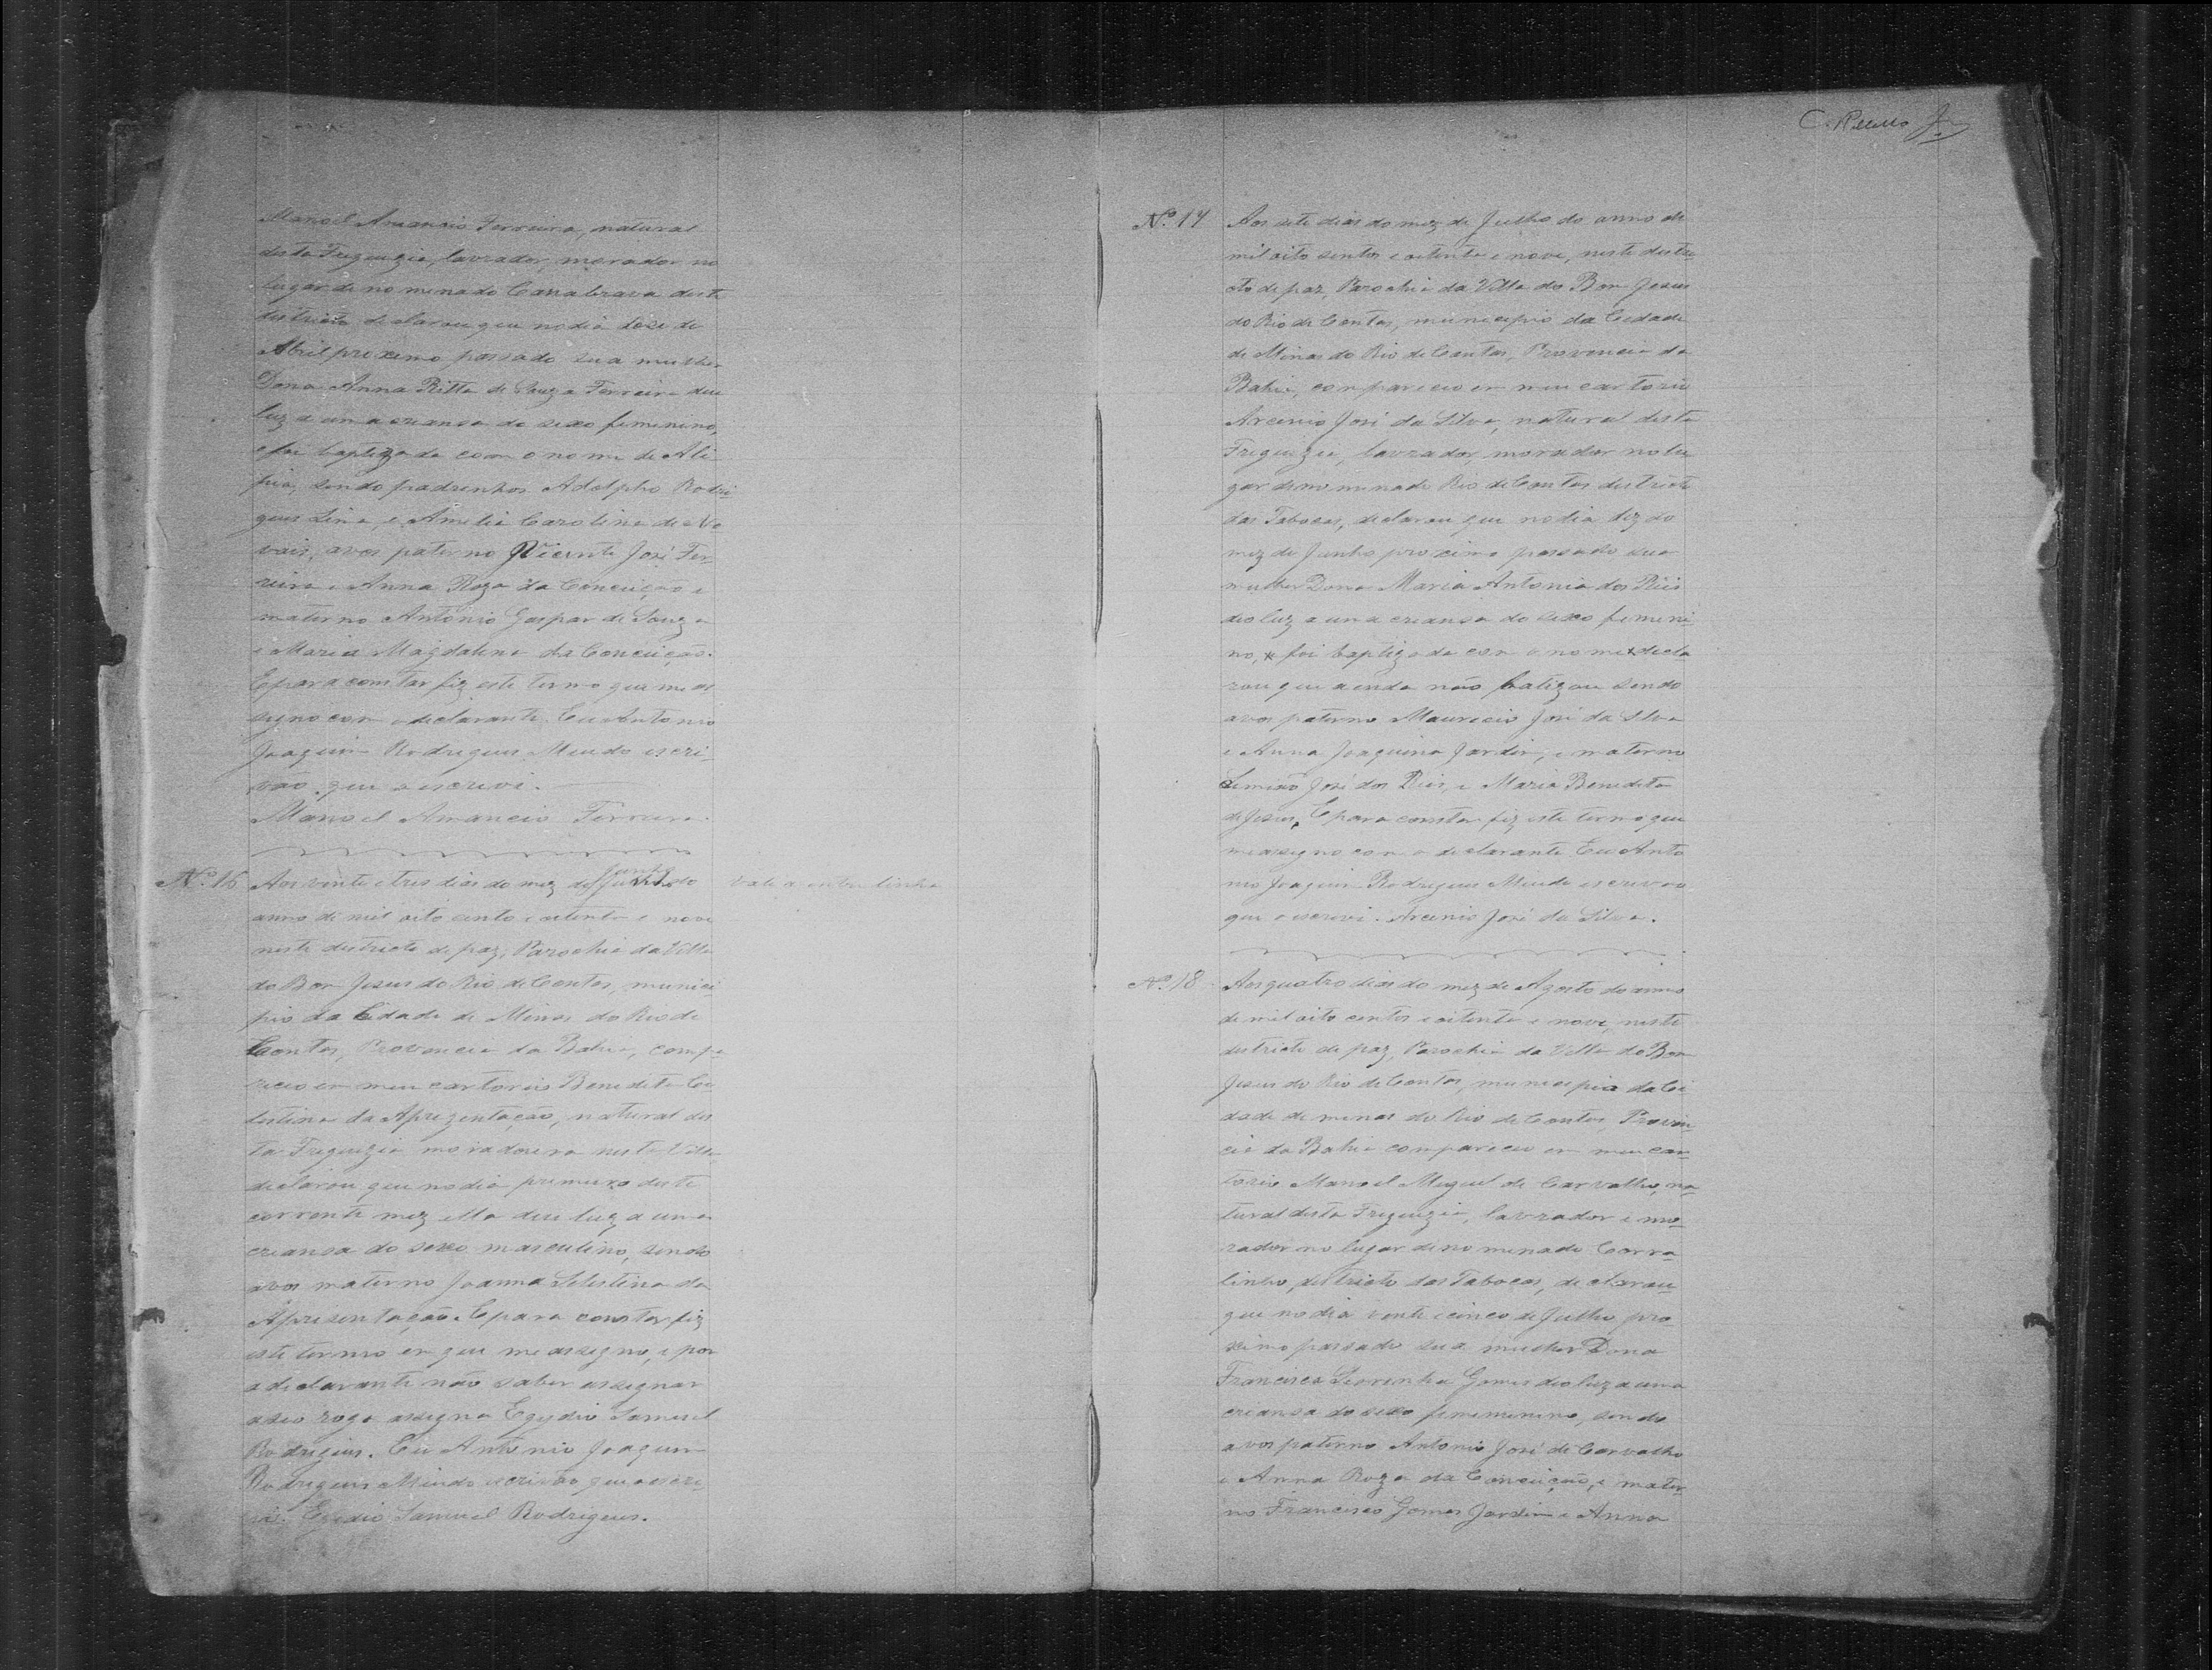 Manoel Amancio Ferreira, natural
desta Freguezia, lavrador, morador no
lugar de no minado Cannabrava deste
districto declarou que no dia doze de
Abril proximo passado sua mulher
Dona Anna Ritta de Souza Ferreira deu
luz a uma criansa do sexo feminino,
e foi baptizada com o nome de Ali
pia, sendo padrinhos Adolpho Rodri
gues Lima, e Amelia Carolina de No
vais, avos paterno Vicente José Fer
reira e Anna Roza da Conceição e
materno Antonio Gaspar de Souza
e Maria Magdalena da Conceição.
E para constar fiz este termo que me as
signo com o declarante. Eu Antonio
Joaquim Rodrigues Miudo escri
vão que o escrevi.
Manoel Amancio Ferreira.
Nº. 16 Aos vinte e tres dias do mez de Junho do Vali a entre linha
anno de mil oito cento e oitenta e nove
neste districto de paz, Parochia da Villa
do Bom Jesus do Rio de Contas, munici
pio da Cidade de Minas do Rio de
Contas, Provencia da Bahia, compa
receo em meu cartorio Benedita Ce
lestina da Aprezentação, natural des
ta Freguezia moradora nesta Villa
declarou que no dia primeiro deste
corrente mez ella deu luz a uma
creansa do sexo masculino, sendo
avos materno Joanna Selestina da
Apresentação. E para constar fiz
este termo em que me assigno, e por
a declarante não saber assignar
a seo rogo assigna Egydio Samuel
Rodrigues. Eu Antonio Joaquim
Rodrigues Miudo escrivão que o escre
vi. Egidio Samuel Rodrigues.
C.
Nº. 17 Aos sete dias do mez de Julho do anno de
mil oito sentos e oitenta e nove, neste destri
cto de paz, Parochia da Villa do Bom Jesus
do Rio de Contas, municipio da Cidade
de Minas do Rio de Contas, Provencia da
Bahia, compareceo em meu cartorio
Arcenio José da Silva, natural desta
Freguezia, lavrador, morador no lu
gar denominado Rio de Contas districto
das Tabocas, declarou que no dia dez do
mez de Junho proximo passado sua
mulher Dona Maria Antonia dos Reis
deo luz a uma creansa do sexo femini
no, x foi baptizada com o nome x decla
rou que ainda não batizou sendo
avos paterno Mauricio José da Silva
e Anna Joaquina Jardim, e materno
Simião José dos Reis, e Maria Benedita
de Jesus. E para constar fiz este termo que
me assigno com o declarante Eu Anto
nio Joaquim Rodrigues Miudo escrivão
que o escrevi. Arcenio José da Silva.
Nº. 18 Aos quatro dias do mez de Agosto do anno
de mil oito centos e oitenta e nove, neste
districto de paz, Parochia da Villa do Bom
Jesus do Rio de Contas, municipio da Ci
dade de minas do Rio de Contas, Proven
cia da Bahia compareceu em meu car
torio Manoel Miguel de Carvalho, na
tural desta Freguezia, lavrador e mo
rador no lugar denominado Corra
linho, districto das Tabocas, declarou
que no dia vinte e cinco de Julho pro
ximo passado sua mulher Dona
Francisca Gomes deo luz a uma
creansa do sexo femeninino, sendo
avos paterno Antonio José de Carvalho
e Anna Roza da Conceição, e mater
no Francisco Gomes Jardim e Anna